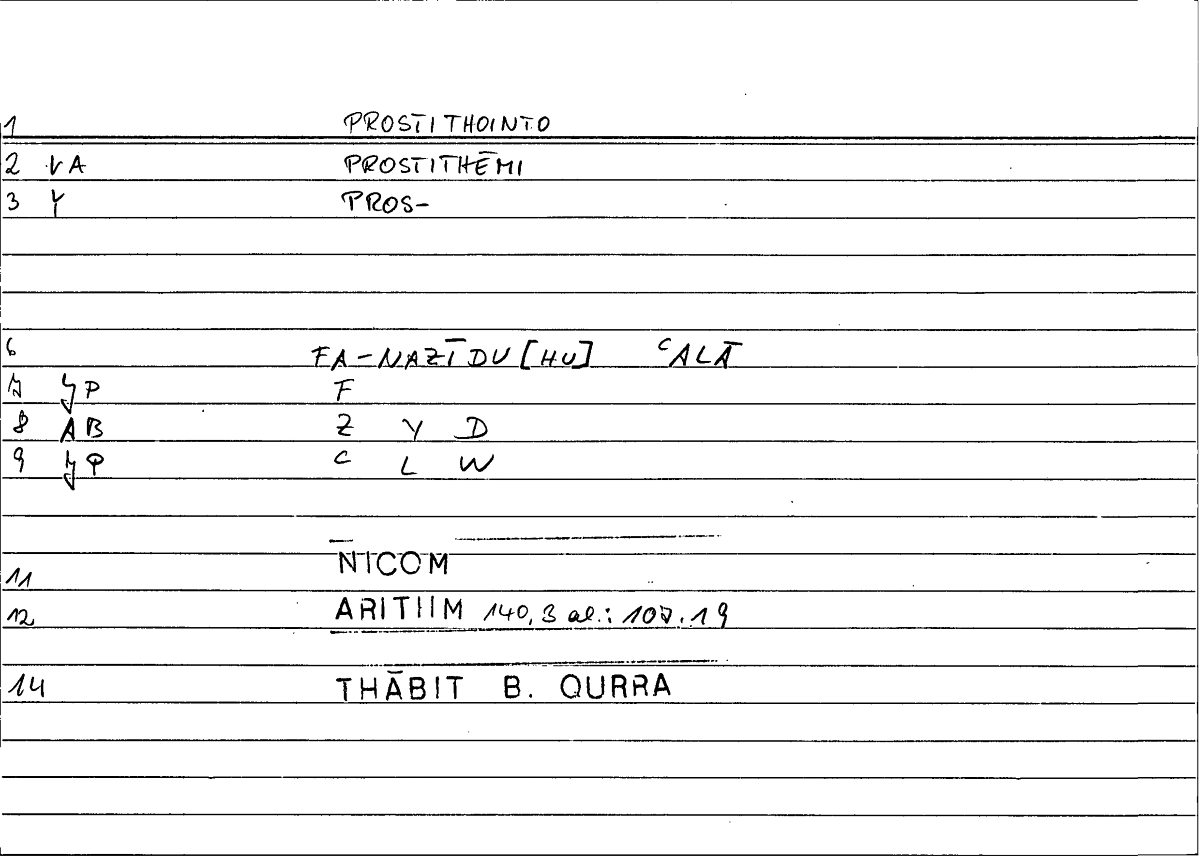 1 PROSTITHOINTO
2 VA PROSTITHĒMI
3 Y PROS-
6 FA-NAZĪDU[HU] ᶜALĀ
7 P F
8 AB Z Y D
9 P C L W
11 NICOM
12 ARITIIM 140,3 al.: 107.19
14 THĀBIT B. QURRA